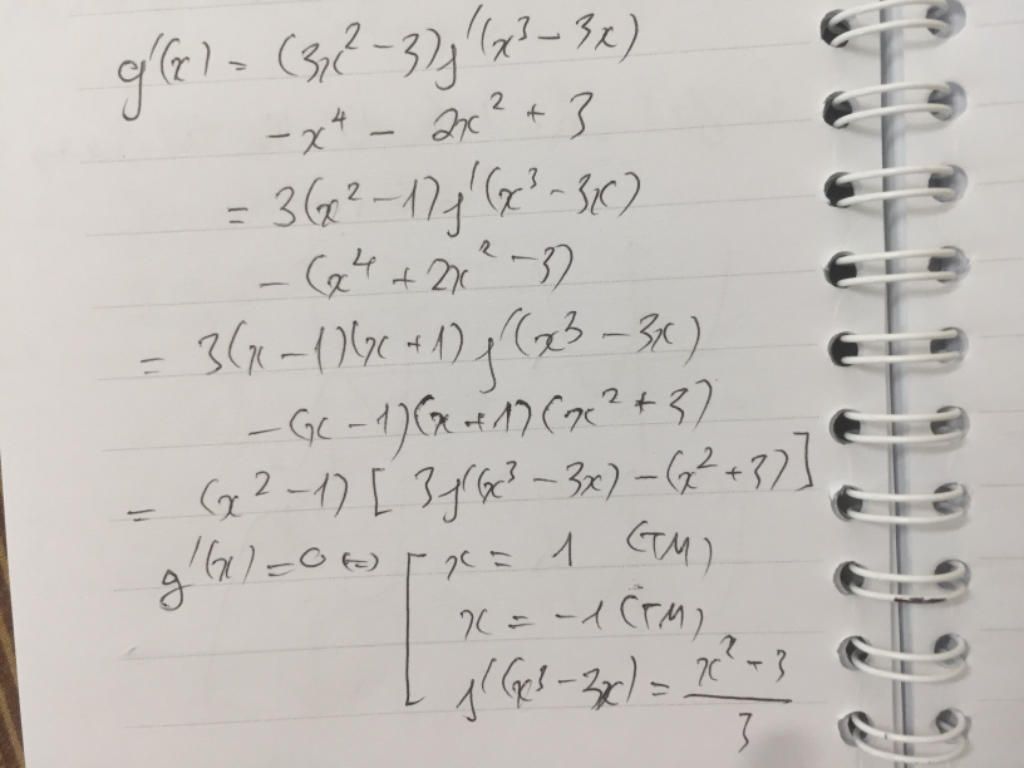 g'(x) = (3x² - 3)f'(x³ - 3x)
- x⁴ - 2x² + 3
= 3(x² - 1)f'(x³ - 3x)
- (x⁴ + 2x² - 3)
= 3(x - 1)(x + 1)f'(x³ - 3x)
- (x - 1)(x + 1)(x² + 3)
= (x² - 1)[3f'(x³ - 3x) - (x² + 3)]
g'(x) = 0 ⇔ [ x = 1 (TM)
x = -1 (TM)
f'(x³ - 3x) = (x² + 3)/3